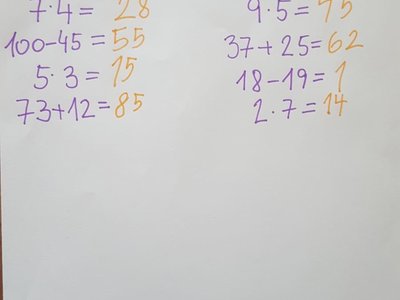 7·4 = 28 9·5 =
100-45 = 55 37+25= 62
5·3 = 15 18-19= 1
73+12= 85 2·7 = 14